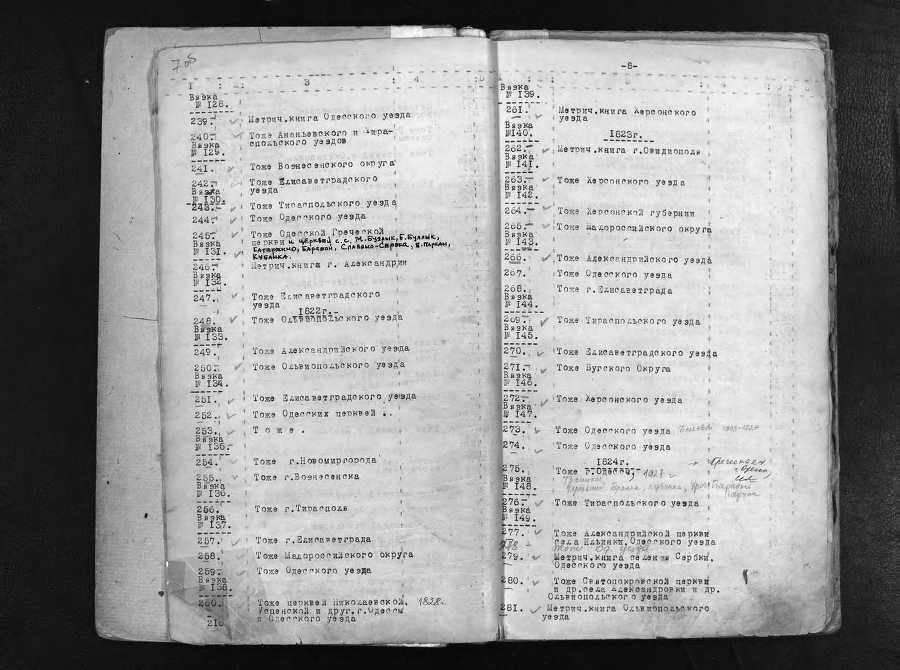 I 3 4
Вязка
№ I28.
239. Метрич.книга Одесского уезда
240. Тоже Ананьевского и Тира-
Вязка спольского уездов
№ I29.
241. Тоже Вознесенского округа
242. Тоже Елисаветградского
Вязка уезда
№ I30.
243. Тоже Тираспольского уезда
244. Тоже Одесского уезда
245. Тоже Одесской Греческой
Вязка церкви и церквей с.с. М.Буялык, Б.Буялык,
№ I31.
Кубанка.
246. Метрич.книга г. Александрии
Вязка
№ I32.
247. Тоже Елисаветградского
уезда
I822г.
248. Тоже Ольвиопольского уезда
Вязка
№ I33.
249. Тоже Александрийского уезда
250. Тоже Ольвиопольского уезда
Вязка
№ I34.
251. Тоже Елисаветградского уезда
252. Тоже Одесских церквей ..
253. Т о ж е .
Вязка
254. Тоже г.Новомиргорода
255. Тоже г.Вознесенска
Вязка
№ I36.
256. Тоже г.Тирасполя
Вязка
№ I37.
257. Тоже г.Елисаветграда
258. Тоже Малороссийского округа
259. Тоже Одесского уезда
Вязка
№ I38.
260. Тоже церквей Николаевской, 1828г.
Успенской и друг.г.Одессы
и Одесского уезда
-8-
Вязка
№ I39.
261. Метрич.книга Херсонского
уезда
Вязка
№I40. I823г.
262. Метрич.книга г.Овидиополя
Вязка
№ I41.
263. Тоже Херсонского уезда
Вязка
№ I42.
264. Тоже Херсонской губернии
265. Тоже Малороссийского округа
Вязка
№ I43.
266. Тоже Александрийского уезда
267. Тоже Одесского уезда
268. Тоже г.Елисаветграда
Вязка
№ I44.
269. Тоже Тираспольского уезда
Вязка
№ I45.
270. Тоже Елисаветградского уезда
271. Тоже Бугского Округа
Вязка
№ I46.
272. Тоже Херсонского уезда
Вязка
№ I47.
273. Тоже Одесского уезда
274. Тоже Одесского уезда
I824г.
275. Тоже г.Одессы, 1827
Вязка
№ I48.
276. Тоже Тираспольского уезда
Вязка
№ I49.
277. Тоже Александрийской церкви
села Ильинки, Одесского уезда
278 Тоже Од. уезда
279. Метрич.книга селения Сербки,
Одесского уезда
280. Тоже Святопокровской церкви
и др.села Александровки и др.
Ольвиопольского уезда
281. Метрич.книга Ольвиопольского
уезда